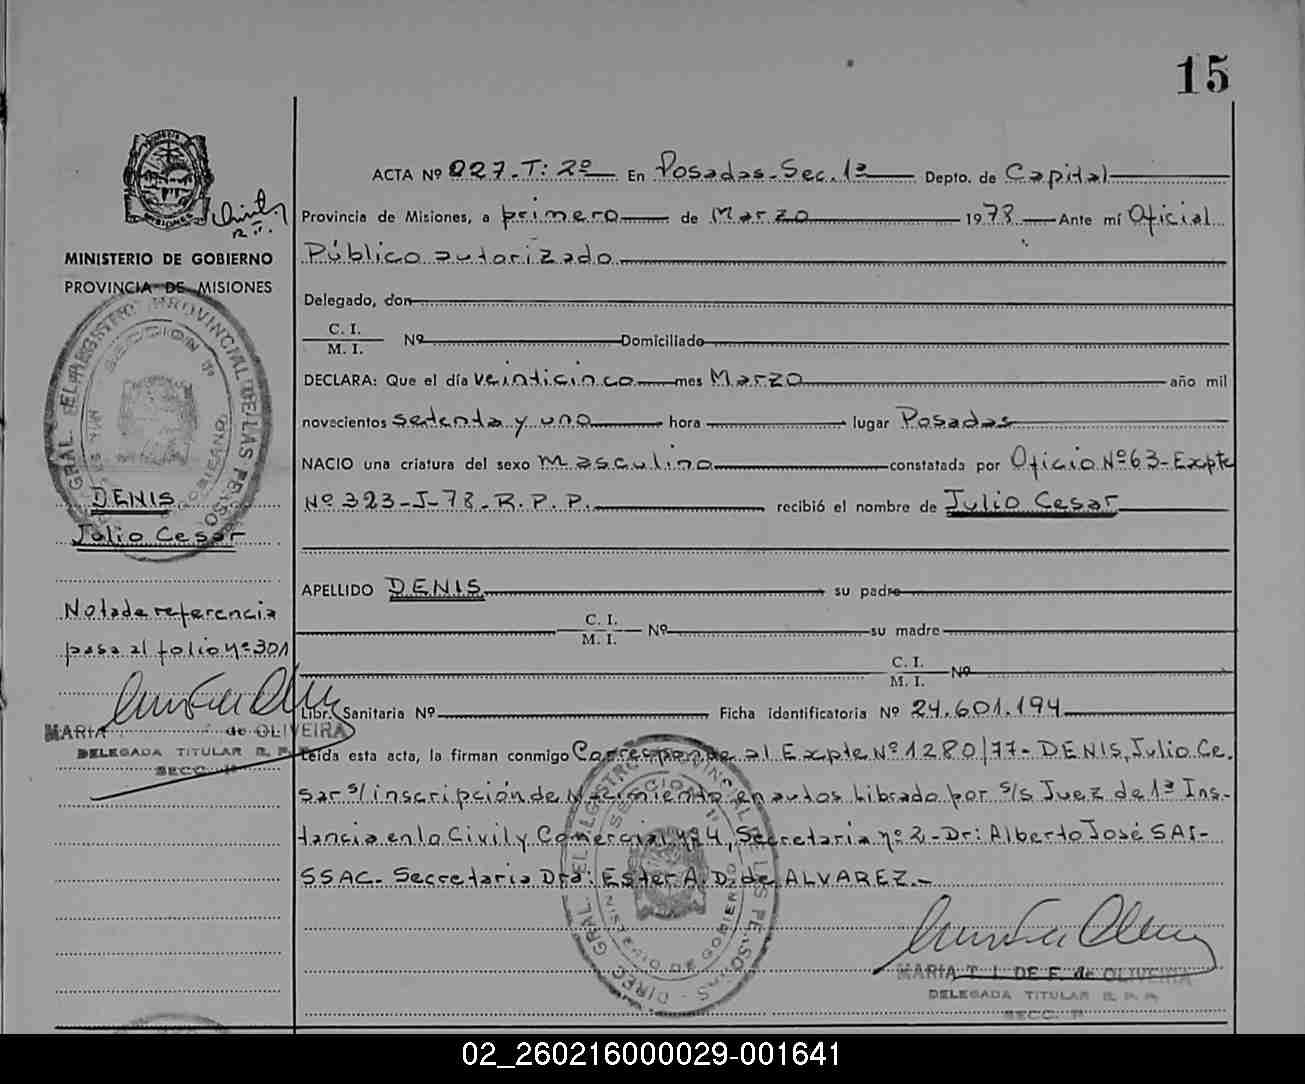 15
ACTA Nº 227 - T: 2º En Posadas - Sec. 1ª Depto. de Capital
Provincia de Misiones, a primero de Marzo 1978 Ante mí Oficial
Público autorizado
Delegado, don
C. I.
M. I. Nº Domiciliado
DECLARA: Que el día veinticinco mes Marzo año mil
novecientos setenta y uno hora lugar Posadas
NACIO una criatura del sexo Masculino constatada por Oficio Nº 63 - Expte
Nº 323 - J - 78 - R. P. P. recibió el nombre de Julio Cesar
APELLIDO DENIS su padre
C. I.
M. I. Nº su madre
C. I.
M. I. Nº
Libr. Sanitaria Nº Ficha identificatoria Nº 24.601.194
Leída esta acta, la firman conmigo Corresponde al Expte Nº 1280/77 - DENIS, Julio Ce-
sar s/ inscripción de Nacimiento en autos librado por s/s Juez de 1ª Ins-
tancia en lo Civil y Comercial nº 4, Secretaria nº 2 - Dr: Alberto José SAI-
SSAC - Secretaria Dra: Ester A. D. de ALVAREZ.-
MARIA T. I. DE F. de OLIVEIRA
DELEGADA TITULAR R. P. P.
SECC. 1ª
MISIONES
MINISTERIO DE GOBIERNO
PROVINCIA DE MISIONES
DIREC. GRAL. DEL REGISTRO PROVINCIAL DE LAS PERSONAS
SECCION 1ª
MINISTERIO DE GOBIERNO
DENIS
Julio Cesar
Nota de referencia
pasa al folio nº 301
MARIA de OLIVEIRA
DELEGADA TITULAR R. P.
SECC. 1ª
DIREC. GRAL. DEL REGISTRO PROVINCIAL DE LAS PERSONAS
SECCION 1ª
MINISTERIO DE GOBIERNO
02_260216000029-001641